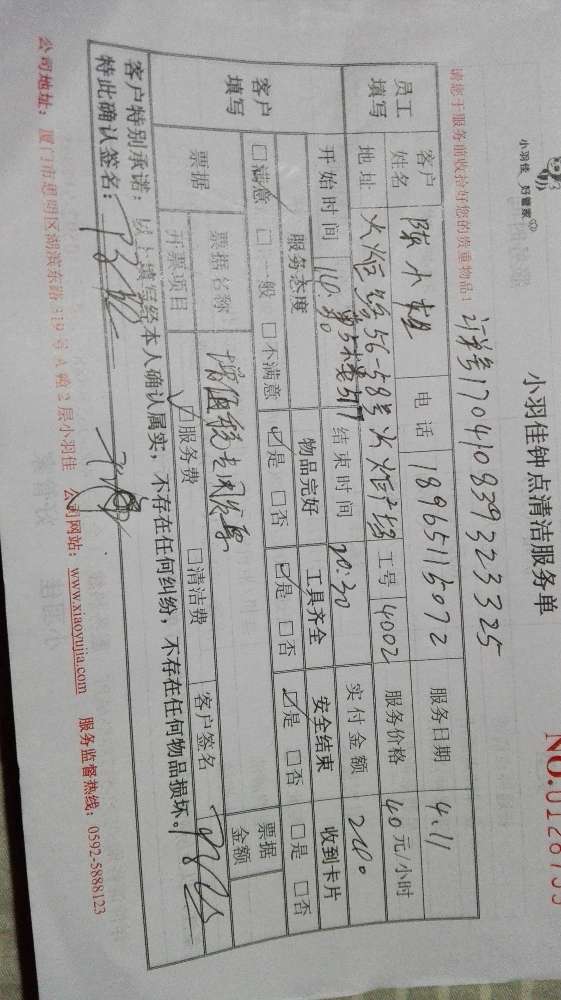 小羽佳 妇管家
小羽佳钟点清洁服务单
NO.0128793
请您于服务前收拾好您的贵重物品!
订单号17041083932 3325
员工填写 客户姓名 陈小姐 电话 18965115072 服务日期 4.11
地址 火炬路56-58号火炬广场 工号 4002 服务价格 40元/小时
开始时间 16:30 结束时间 20:30 实付金额 240
客户填写 服务态度 物品完好 工具齐全 安全结束 收到卡片
□满意 □一般 □不满意 □是 □否 □是 □否 □是 □否 □是 □否
票据 票据名称 增值税专用发票 票据金额
开票项目 □服务费 □清洁费 客户签名
客户特别承诺:以上填写经本人确认属实,不存在任何纠纷,不存在任何物品损坏。
特此确认签名:
公司地址:厦门市思明区湖滨东路319号A幢2层小羽佳 公司网站:www.xiaoyujia.com 服务监督热线:0592-5888123